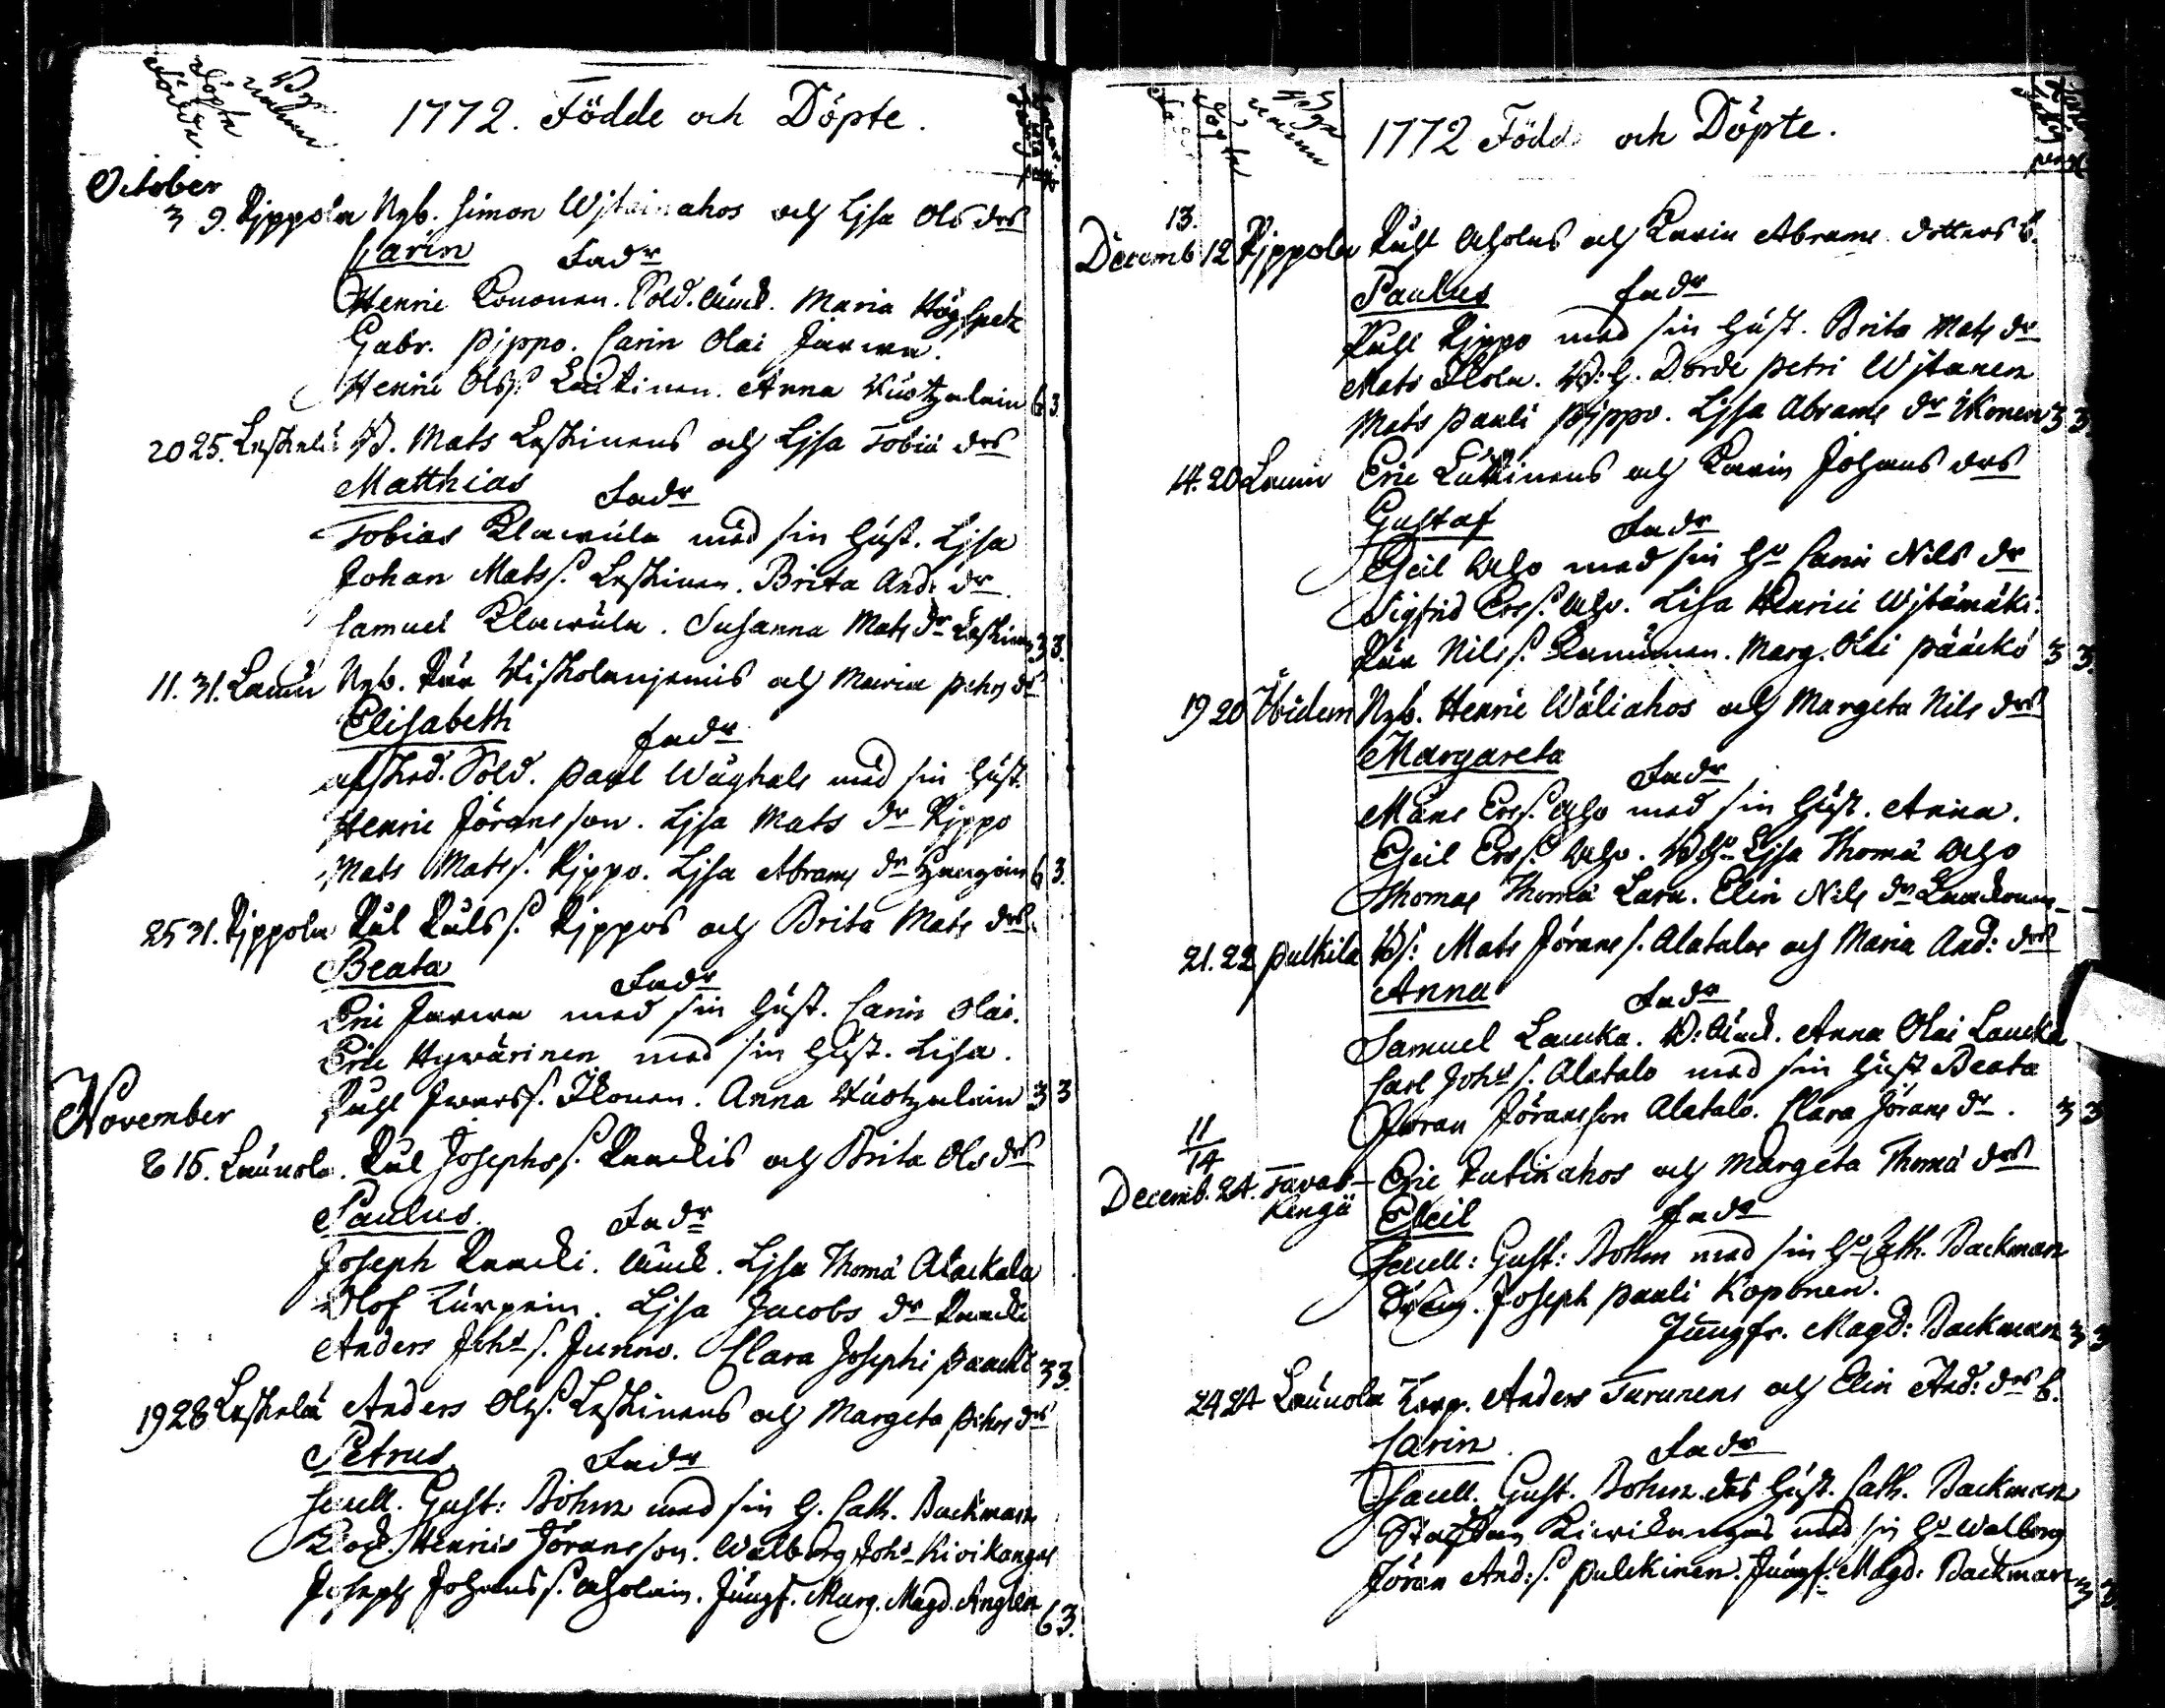 Födde Döpte Byar
1772. Födde och Döpte.
October
3 9. Pippola Nyb. Simon Wjtainahos och Lisa Ols drs
Carin Faddr
Henric Kononen. Sold. Maria Högspetz
Gabr. Pippo. Carin Olai Jarwa.
Henric Olss. Leskinen. Anna 63.
20 25. Leskelä B. Mats Leskinens och Lisa Tobiæ drs
Matthias Faddr
Tobias Klawula med sin Hust. Lisa
Johan Matss. Leskinen. Brita And: dr
Samuel Klawula. Susanna Mats dr Leskinen 33.
11. 31. Lamu Nyb. Pär och Maria Pehrs dr
Elisabeth Faddr
afsked. Sold. Paul Wäghals med sin Hust.
Henric Jöransson. Lisa Mats dr Pippo
Mats Matss. Pippo. Lisa Abrams dr 63.
25 31. Pippola Pål Pålss. Pippos och Brita Mats drs.
Beata Faddr
Eric Jarwa med sin Hust. Carin Olai.
Eric Hywärinen med sin Hust. Lisa.
Påhl Iwarss. Ikonen. Anna 33
November
8 15. Launola. Pål Josephss. och Brita Ols drs
Paulus Faddr
Joseph Lisa Thomæ Alackala
Olof Lisa Jacobs dr
Anders Johs s. Junno. Clara Josephi 33.
19 28 Leskelä Anders Olss. Leskinens och Margeta Pehrs drs
Petrus Faddr
Gust: Bohm med sin H. Cath. Backman
Henric Jöransson. Walborg Johs Kivikangas
Joseph Johanss. Aholain. Jungf. Marg. Magd. Anglen 63.
1772 Födde och Döpte.
13.
Decemb 12 Pippola Påhl Aholas och Karin Abrams dotters b.
Paulus Faddr
Påhl Pippo med sin Hust. Brita Mats dr
Mats Ilola. B. H. Dorde Petri Wjtanen
Mats Pauli Pippo. Lisa Abrams dr Ikonen 33.
14. 20 Lamu Eric Lukkinens och Karin Johans drs
Gustaf Faddr
Eschil Aho med sin Hu Carin Nils dr
Sigfrid Erss. Aho. Lisa Henrici Wjtamäki.
Pär Nilss. Marg. Olai Pääckö 33.
19 20 Ibidem Nyb. Henric Wäliahos och Margeta Nils drs
Margareta Faddr
Måns Erss. Aho med sin Hust. Anna.
Eschil Erss. Aho. Lisa Thomæ Aho
Thomas Thomæ Lara. Elin Nils dr
21. 22 Pulkila B: Mats Jöranss. Alatalos och Maria And: drs
Anna Faddr
Samuel Laucka. Anna Olai Laucka
Carl Johs s. Alatalo med sin Hust Beata
Jöran Jöransson Alatalo. Clara Jörans dr. 33
11
14
Decemb. 24. Tavast-
kengä Eric och Margeta Thomæ drs
Eschil Faddr
Gust: Bohm med sin Hu Cath. Backman
Dräng. Joseph Pauli Koponen.
Jungfr. Magd: Backman 33
24 24 Launola Korp. Anders Turunens och Elin And: drs b.
Carin Faddr
Gust. Bohm des Hust. Cath. Backman
Staffan Kiwikangas med sin Hu Walborg
Jöran And: s. Pulckinen. Jungf: Magd: Backman 33